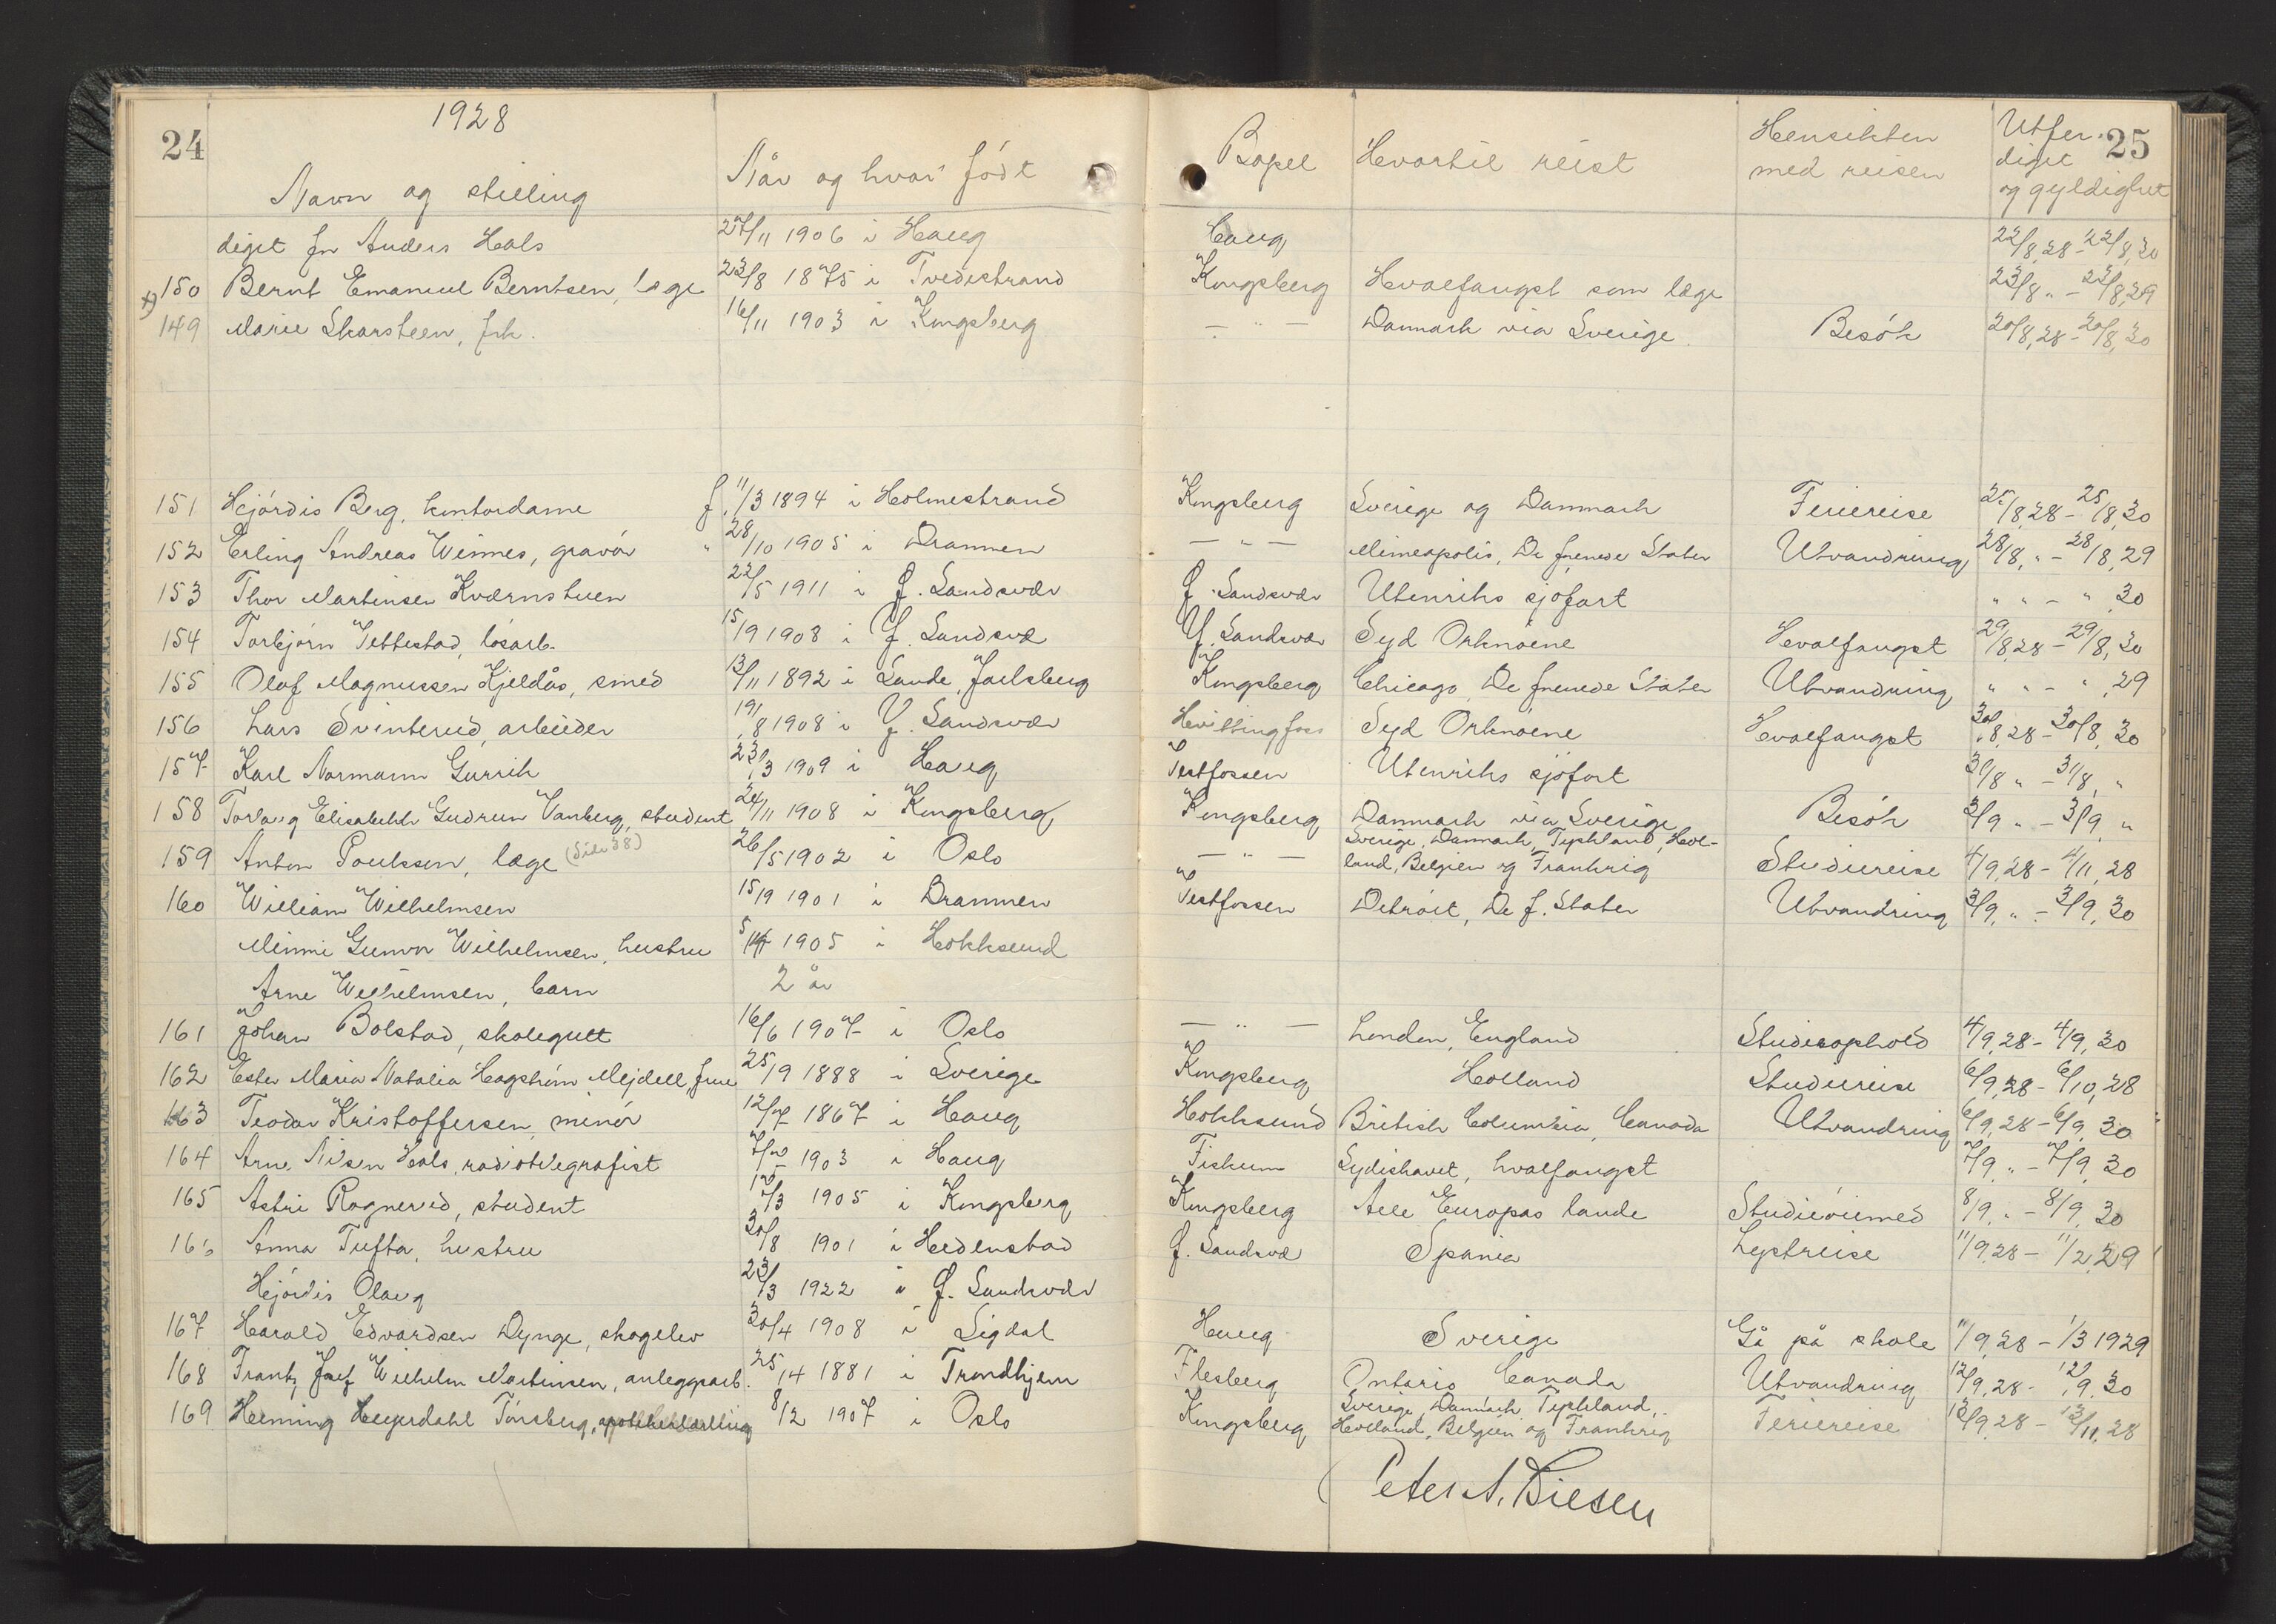 24
1928
Navn og stilling
Når og hvor født
Bopel
Hvortil reist
Hensikten med reisen
Utfer- 25
diget
og gyldighet
diget fr Anders Hals 27/11 1906 i Haug Haug 22/8,28 - 22/8,30
x) 150 Bernt Emanuel Berntsen, læge 23/8 1875 i Tvedestrand Kongsberg Hvalfangst som læge 23/8 „ - 23/8,29
149 Marie Skarsteen, frk. 16/11 1903 i Kongsberg — „ — Danmark via Sverige. Besøk 20/8,28 - 20/8,30
151 Hjørdis Berg, kontordame f. 11/3 1894 i Holmestrand Kongsberg Sverige og Danmark Feriereise 25/8,28 - 25/8,30
152 Erling Andreas Winnes, gravør „ 28/10 1905 i Drammen — „ — Mineapolis, De forenede Stater Utvandring 28/8, „ - 28/8,29
153 Thor Martinsen Kværnstuen 22/5 1911 i Ø. Sandsvær Ø. Sandsvær Utenriks sjøfart „ „ - „ ,30
154 Torbjørn Jettestad, løsarb. 15/9 1908 i Y. Sandsvæ Y. Sandsvær Syd Orknøene Hvalfangst 29/8,28 - 29/8,30
155 Olaf Magnussen Kjeldås, smed 13/11 1892 i Sande, Jarlsberg Kongsberg Chicago De forenede Stater Utvandring „ „ - „ ,29
156 Lars Svinterud, arbeider 19/8 1908 i Y. Sandsvær Hvittingfoss Syd Orknøene Hvalfangst 30/8,28 - 30/8,30
157 Karl Normann Gurrik 23/3 1909 i Haug Vestfossen Utenriks sjøfart 31/8 „ - 31/8, „
158 Torlaug Elisabeth Gudrun Vanberg, student 24/11 1908 i Kongsberg Kongsberg Danmark via Sverige Besøk 3/9 „ - 3/9 „
159 Anton Poulsson, læge (Side 38) 26/5 1902 i Oslo — „ — Sverige, Danmark, Tyskland, Hol-
land, Belgien og Frankrig Studiereise 4/9,28 - 4/11,28
160 William Wilhelmsen 15/9 1901 i Drammen Vestfossen Detroit, De f. Stater Utvandring 3/9, „ - 3/9,30
Minni Gunvor Wilhelmsen, hustru 1905 i Hokksund
Arne Wilhelmsen, barn 2 år
161 Johan Bolstad, skolegutt 16/6 1907 i Oslo — „ — London, England Studieophold 4/9,28 - 4/9,30
162 Ester Maria Natalia Hagstrøm Mejdell, frue 25/9 1888 i Sverige Kongsberg Holland Studiereise 6/9,28 - 6/10,28
163 Teodor Kristoffersen, minør 12/7 1867 i Haug Hokksund British Columbia, Canada Utvandring 6/9,28 - 6/9,30
164 Arne Nilsen Hals, radiotelegrafist 1903 i Haug Fiskum Sydishavet, hvalfangst 7/9, „ - 7/9,30
165 Astri Rognerud, student 1905 i Kongsberg Kongsberg Alle Europas lande Studieøiemed 8/9, „ - 8/9,30
166 Anna Tufta, hustru 30/8 1901 i Hedenstad Ø. Sandsvæ Spania Lystreise 11/9,28 - 11/2,29
Hjørdis Olaug 23/3 1922 i Ø. Sandsvær
167 Harald Edvardsen Dynge, skogelev 30/4 1908 i Sigdal Haug Sverige Gå på skole 11/9,28 - 1/3 1929
168 Frantz Josef Wilhelm Martinsen, anleggsarb. 25/4 1881 i Trondhjem Flesberg Ontario Canada Utvandring 12/9,28 - 12/9,30
169 Henning Heyerdahl Tønsberg, apotekerlærling 8/2 1907 i Oslo Kongsberg Sverige, Danmark, Tyskland,
Holland, Belgien og Frankrig Feriereise 12/9,28 - 12/11,28
Peter A. Diesen